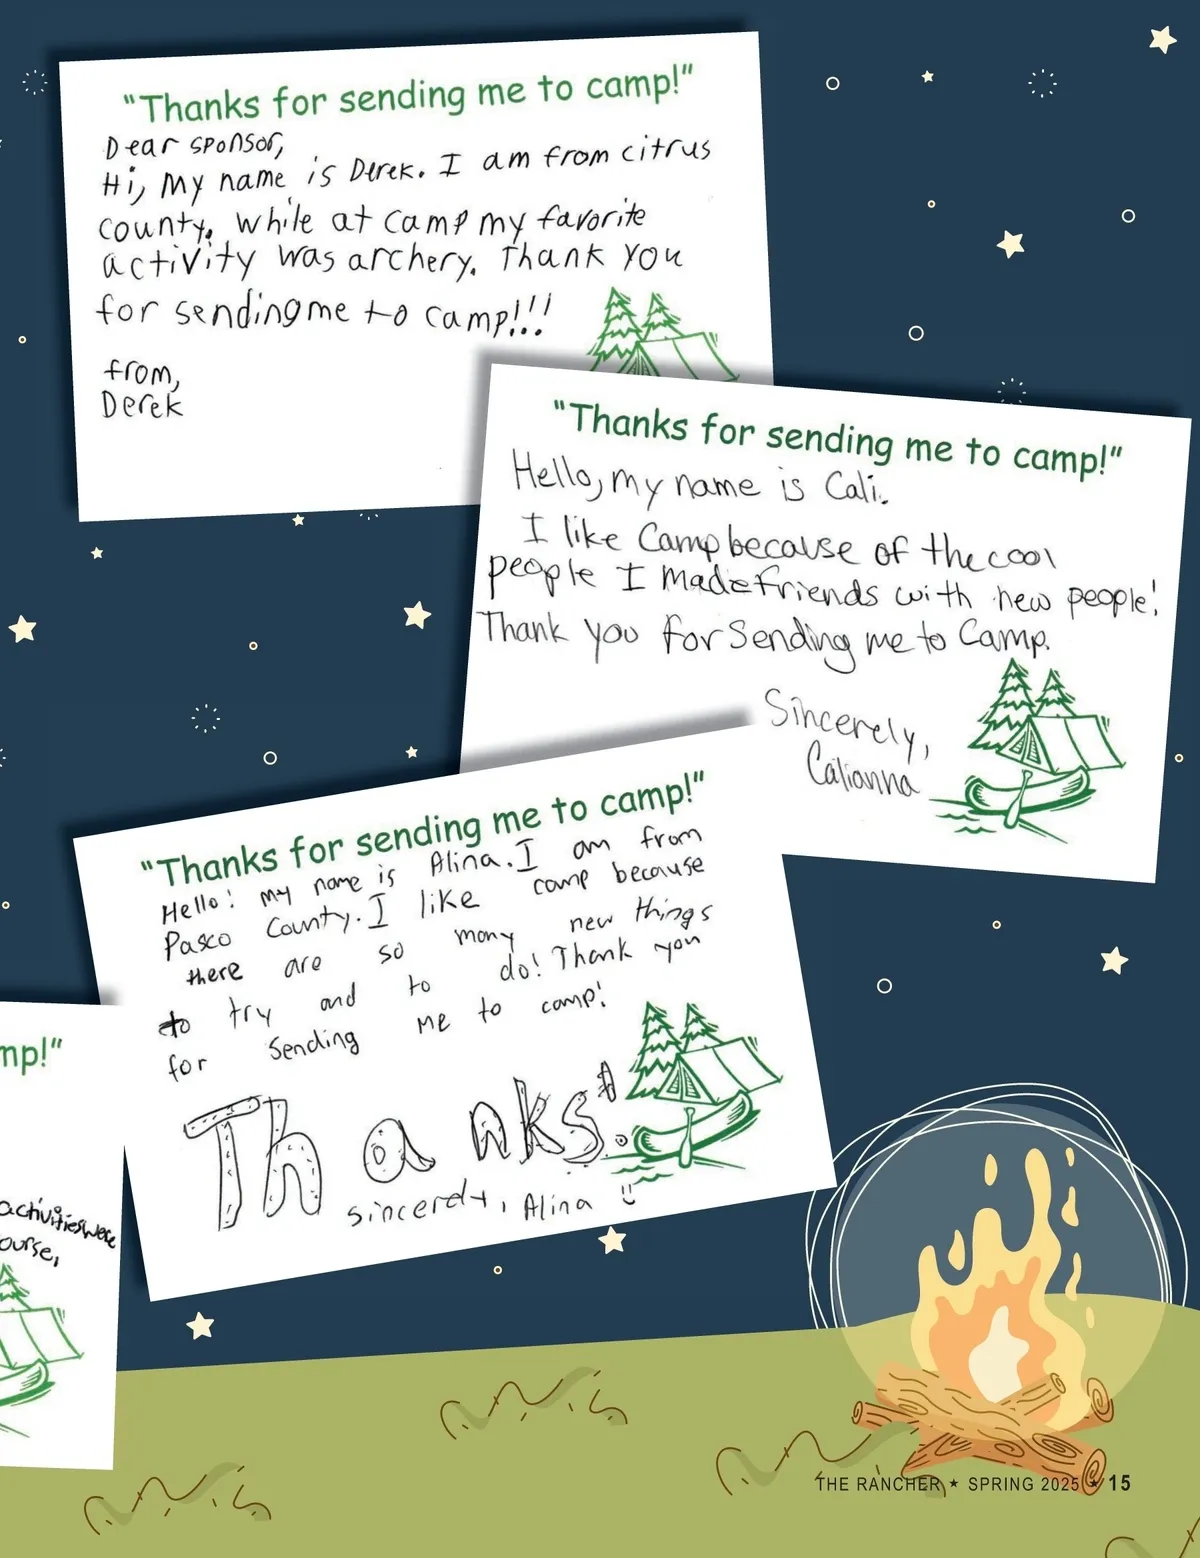 "Thanks for sending me to camp!"
Dear sponsor,
Hi, my name is Derek. I am from citrus
county. While at camp my favorite
activity was archery. Thank you
for sending me to camp!!!
from,
Derek
"Thanks for sending me to camp!"
Hello, my name is Cali.
I like Camp because of the cool
people I made friends with new people!
Thank you for Sending me to Camp.
Sincerely,
Calianna
"Thanks for sending me to camp!"
Hello! my name is Alina. I am from
Pasco County. I like camp because
there are so many new things
to try and to do! Thank you
for Sending me to camp!
Thanks!
sincerely, Alina
mp!"
activities were
ourse,
THE RANCHER ★ SPRING 2025 ★ 15